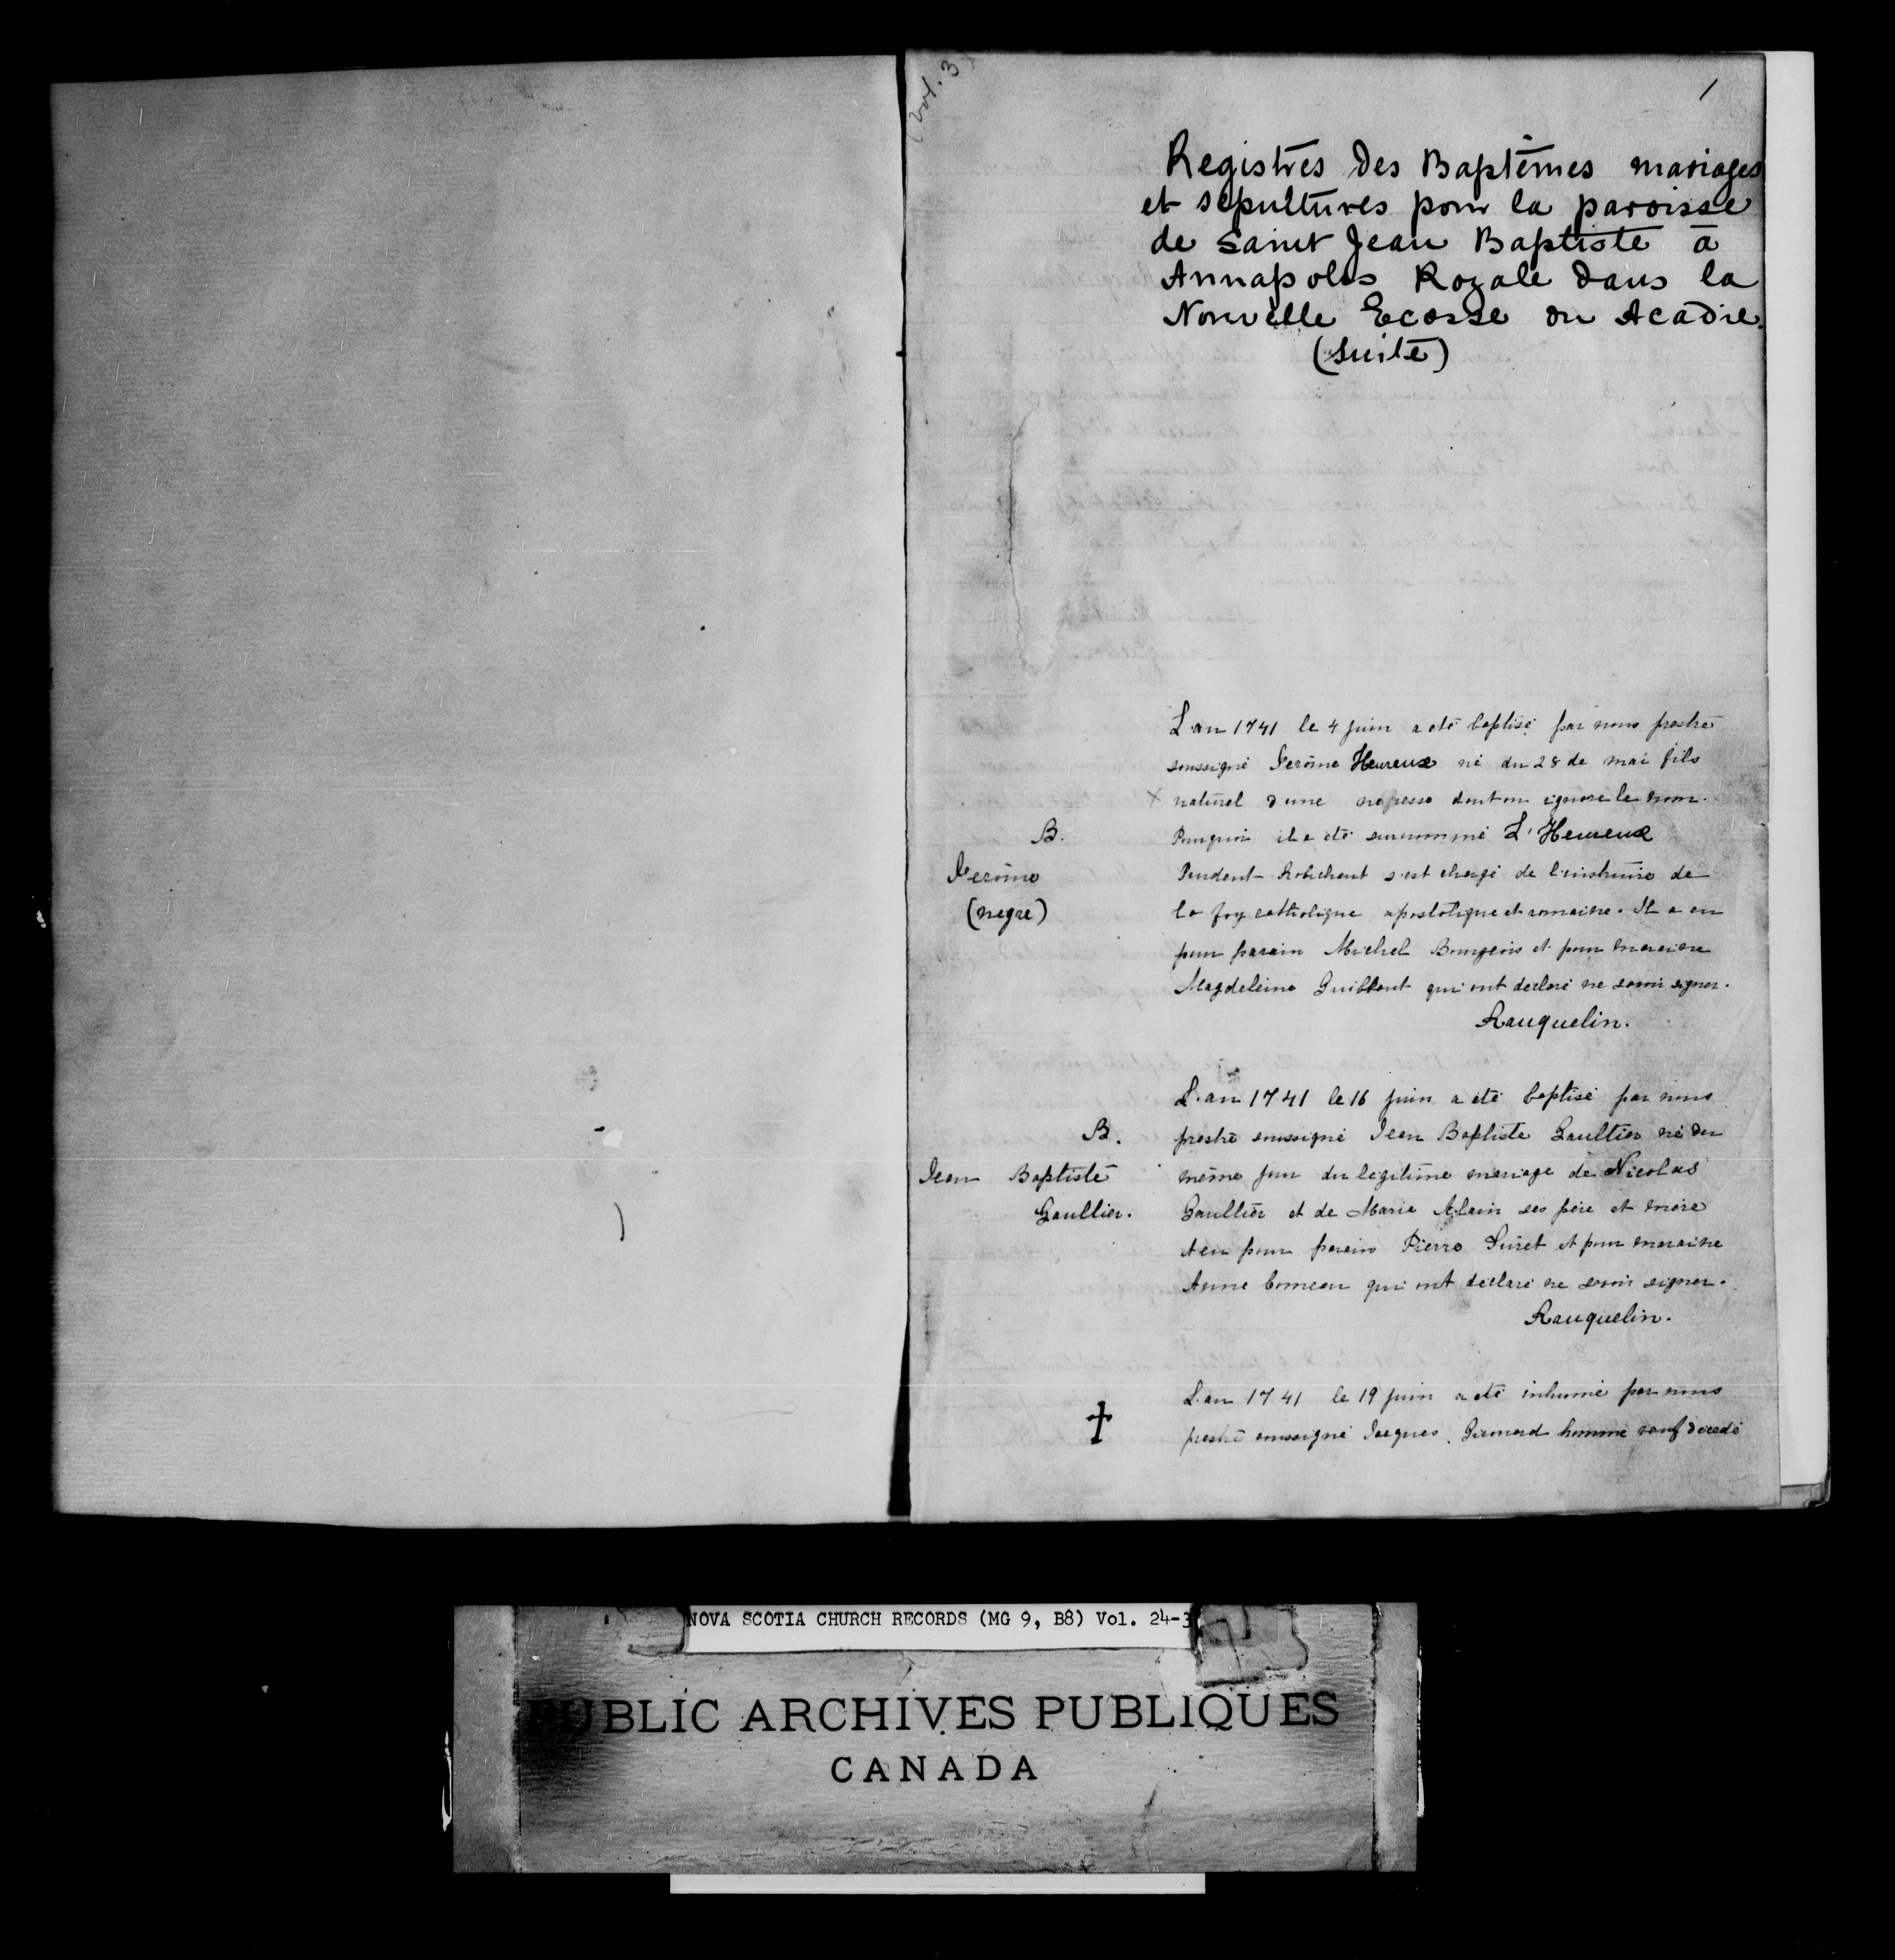 (Vol. 3)
1
Registres des Baptêmes mariages
et sépultures pour la paroisse
de Saint Jean Baptiste à
Annapolis Royale dans la
Nouvelle Ecosse ou Acadie.
(suite)
L'an 1741 le 4 juin a été baptisé par nous prestre
soussigné Jerôme Heureux né du 28 de mai fils
x naturel d'une negresse dont on ignore le nom.
B.
Pourquoi il a été surnommé L'Heureux
Jerôme
Prudent Robichaut s'est chargé de l'instruire de
(negre)
la foy catholique apostolique et romaine. Il a eu
pour parain Michel Bourgeois et pour maraine
Magdeleine Guilbaut qui ont declaré ne savoir signer.
Rauquelin.
L'an 1741 le 16 juin a été baptisé par nous
B.
prestre soussigné Jean Baptiste Gaultier né du
Jean Baptiste
même jour du legitime mariage de Nicolas
Gaultier.
Gaultier et de Marie Alain ses père et mère
A eu pour parain Pierre Suret et pour maraine
Anne Comeau qui ont declaré ne savoir signer.
Rauquelin.
L'an 1741 le 19 juin a été inhumé par nous
prestre soussigné Jacques homme veuf décedé
NOVA SCOTIA CHURCH RECORDS (MG 9, B8) Vol. 24-3
PUBLIC ARCHIVES PUBLIQUES
CANADA